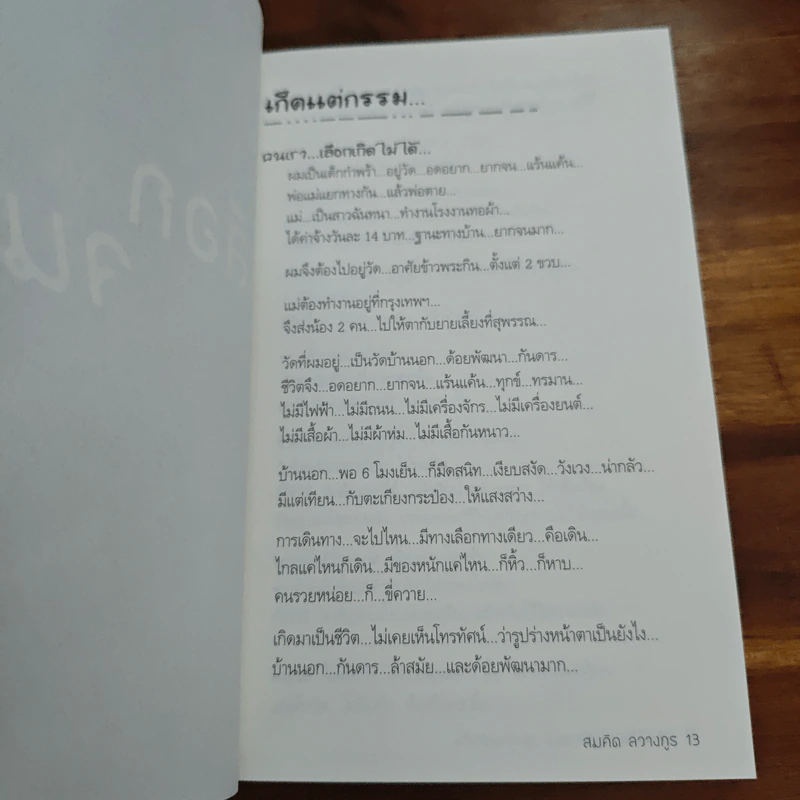 เกิดแต่กรรม...
คนเรา...เลือกเกิดไม่ได้...
ผมเป็นเด็กกำพร้า...อยู่วัด...อดอยาก...ยากจน...แร้นแค้น...
พ่อแม่แยกทางกัน...แล้วพ่อตาย...
แม่...เป็นสาวฉันทนา...ทำงานโรงงานทอผ้า...
ได้ค่าจ้างวันละ 14 บาท...ฐานะทางบ้าน...ยากจนมาก...
ผมจึงต้องไปอยู่วัด...อาศัยข้าวพระกิน...ตั้งแต่ 2 ขวบ...
แม่ต้องทำงานอยู่ที่กรุงเทพฯ...
จึงส่งน้อง 2 คน...ไปให้ตากับยายเลี้ยงที่สุพรรณ...
วัดที่ผมอยู่...เป็นวัดบ้านนอก...ด้อยพัฒนา...กันดาร...
ชีวิตจึง...อดอยาก...ยากจน...แร้นแค้น...ทุกข์...ทรมาน...
ไม่มีไฟฟ้า...ไม่มีถนน...ไม่มีเครื่องจักร...ไม่มีเครื่องยนต์...
ไม่มีเสื้อผ้า...ไม่มีผ้าห่ม...ไม่มีเสื้อกันหนาว...
บ้านนอก...พอ 6 โมงเย็น...ก็มืดสนิท...เงียบสงัด...วังเวง...น่ากลัว...
มีแต่เทียน...กับตะเกียงกระป๋อง...ให้แสงสว่าง...
การเดินทาง...จะไปไหน...มีทางเลือกทางเดียว...คือเดิน...
ไกลแค่ไหนก็เดิน...มีของหนักแค่ไหน...ก็หิ้ว...ก็หาบ...
คนรวยหน่อย...ก็...ขี่ควาย...
เกิดมาเป็นชีวิต...ไม่เคยเห็นโทรทัศน์...ว่ารูปร่างหน้าตาเป็นยังไง...
บ้านนอก...กันดาร...ล้าสมัย...และด้อยพัฒนามาก...
สมคิด ลวางกูร 13